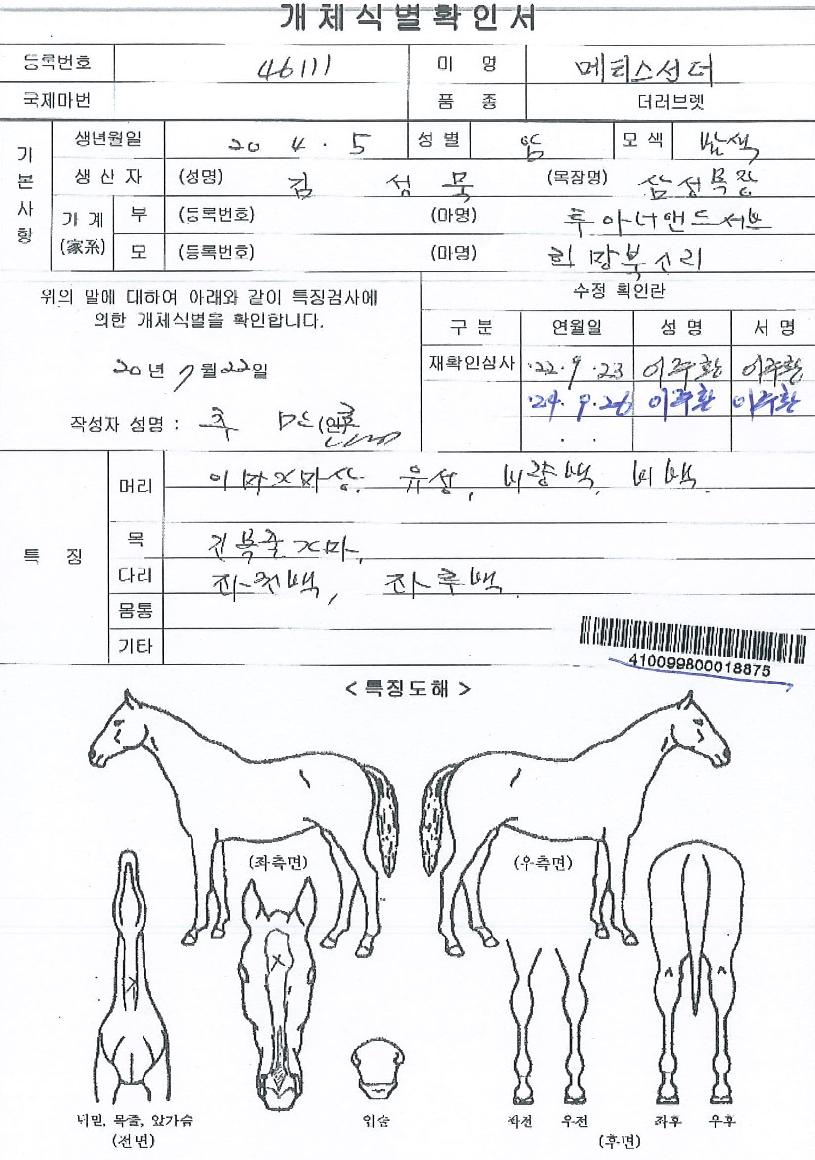 개체식별확인서
등록번호 46111 마 명 메티스선더
국제마번 품 종 더러브렛
기본사항
생년월일 20 4 . 5 성 별 암 모 색 밤색
생 산 자 (성명) 김 성 묵 (목장명) 삼성목장
가 계 (家系) 부 (등록번호) (마명) 투아너앤드서브
모 (등록번호) (마명) 희망북소리
위의 말에 대하여 아래와 같이 특징검사에
의한 개체식별을 확인합니다.
수정 확인란
구 분 연월일 성 명 서 명
재확인심사 '22. 9 . 23 이주환 이주환
'24. 9. 26 이주환 이주환
. .
20 년 7 월 22 일
작성자 성명 : (인)
특 징
머리 이마가마상. 유성, 비량백, 비백
목 진목줄가마,
다리 좌전백, 좌후백.
몸통
기타
410099800018875
< 특징도해 >
(좌측면) (우측면)
너밑, 목줄, 앞가슴
(전면)
입술
좌전 우전 좌후 우후
(후면)